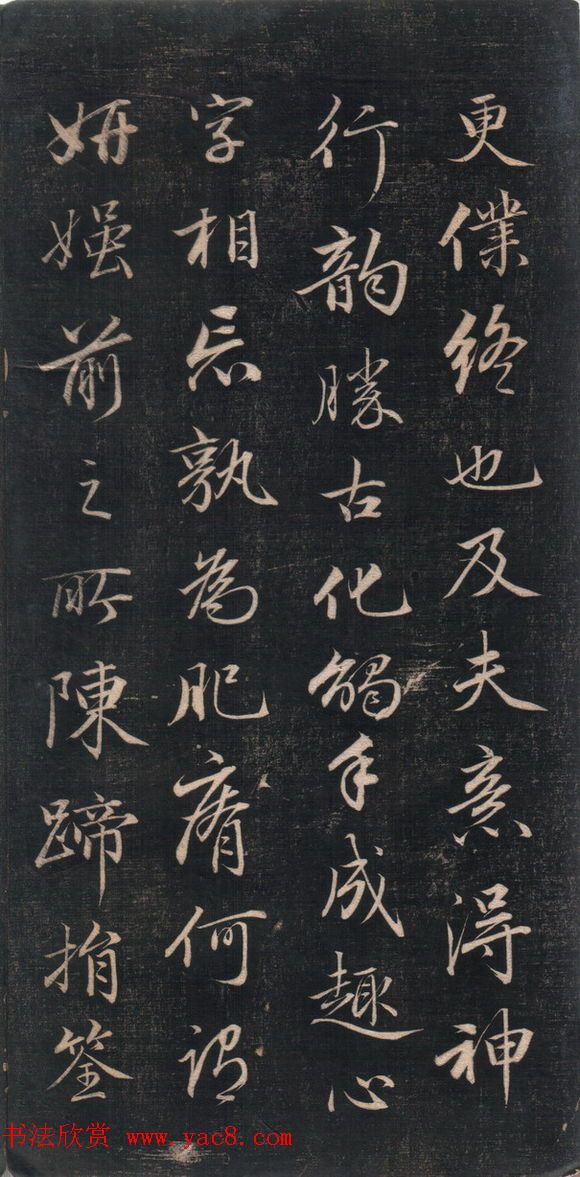 更僕終也及夫意得神
行韵勝古化觸手成趣心
字相忘孰為肥瘠何謂
妍媸前之所陳蹄捐筌
书法欣赏 www.yac8.com